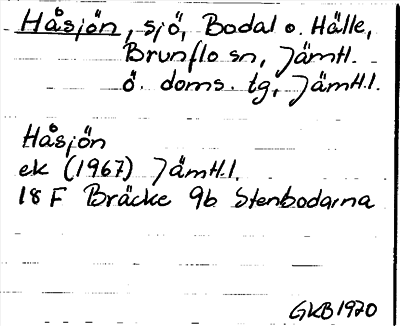 Håsjön, sjö, Bodal o. Hälle,
Brunflo sn, Jämtl.
ö. doms. tg, Jämtl.l.
Håsjön
ek (1967) Jämtl.l.
18 F Bräcke 9b Stenbodarna
GKB 1970